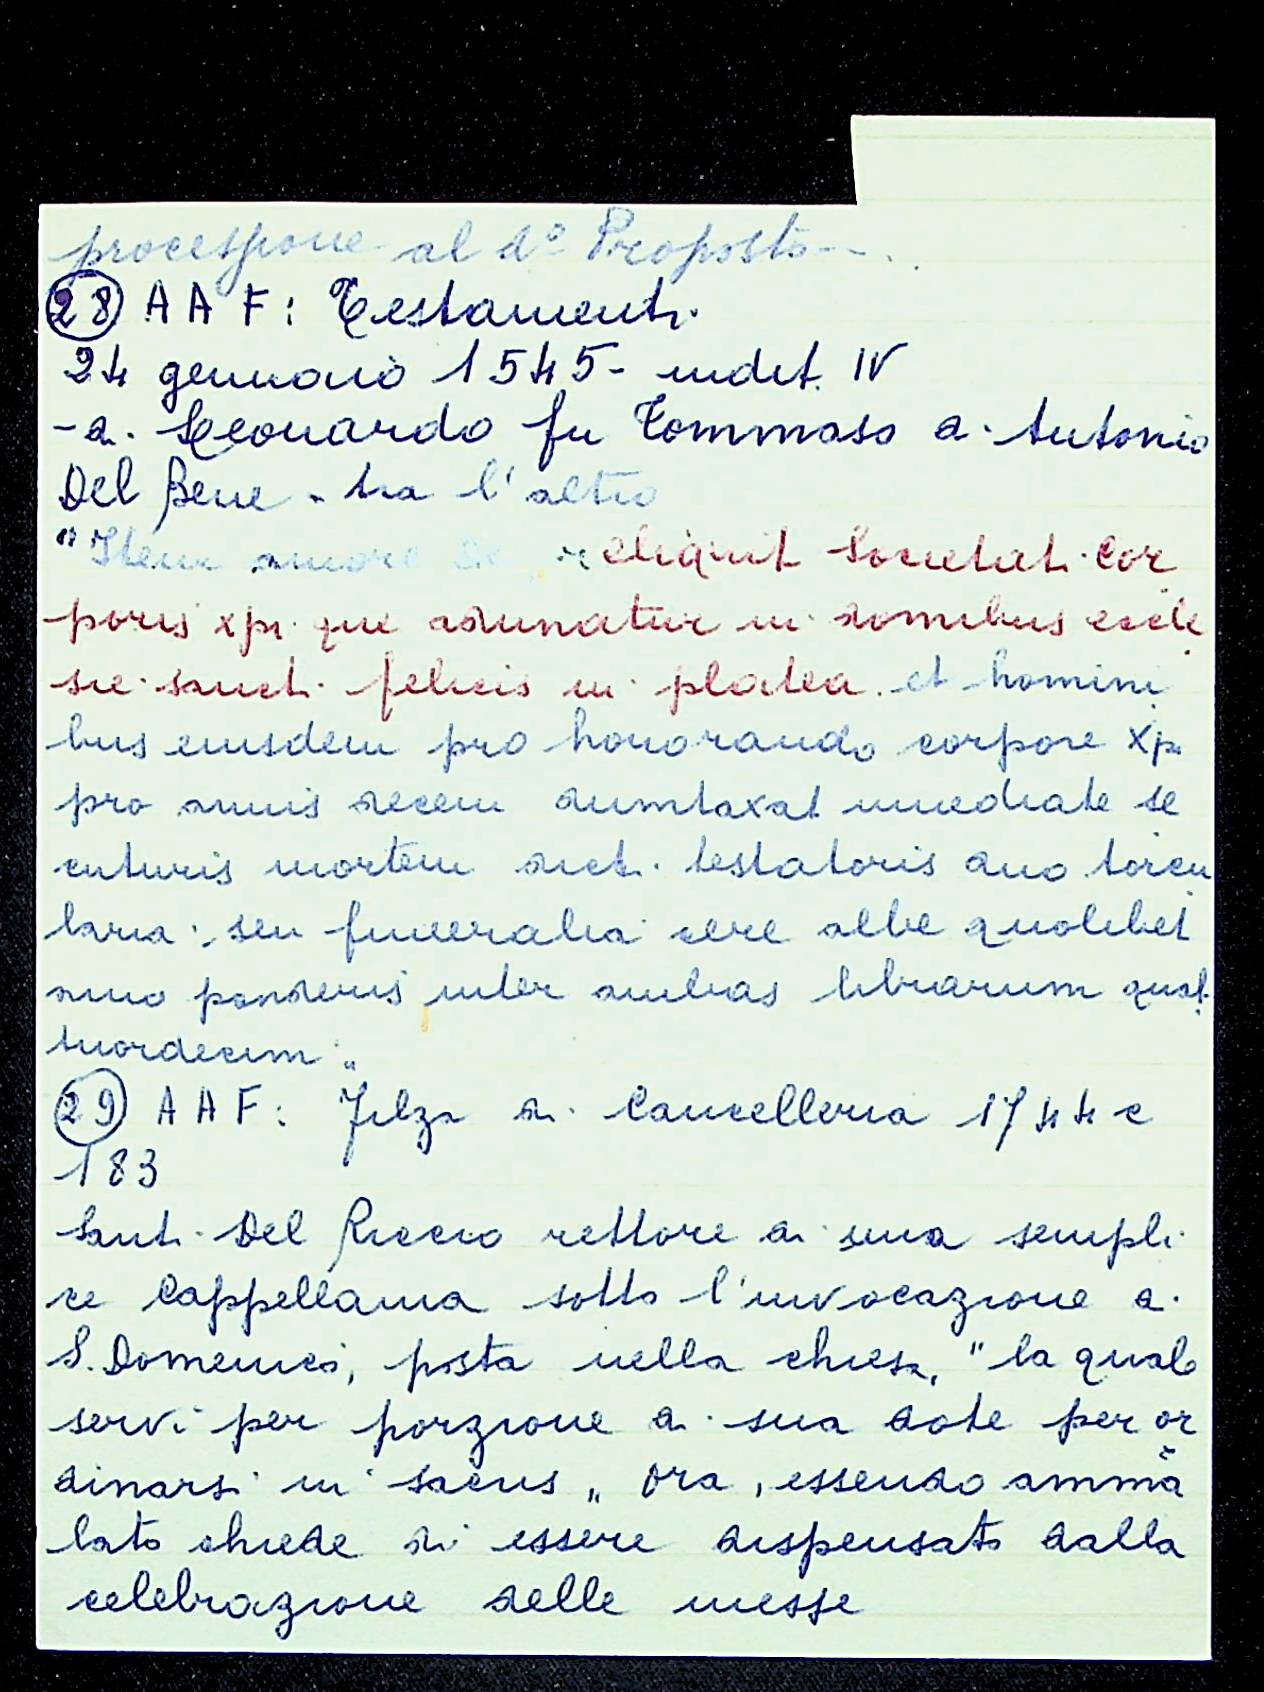 processione al d° Proposto--..
28 A A F: Testamenti
24 gennaio 1545- indit. IV
- di Leonardo fu Tommaso di Antonio
Del Bene - tra l'altro
"Item amore Dei reliquit Societati Cor
poris xpi que adunatur in domibus eccle
sie sancti felicis in platea et homini
bus eiusdem pro honorando corpore Xpi
pro annis decem dumtaxat immediate se
cuturis mortem dicti testatoris duo torcu
laria seu funeralia cere albe quolibet
anno ponderis inter ambas librarum quat
tuordecim "
29 A A F: Filza di Cancelleria 1744 c
183
Santi Del Riccio rettore di una sempli
ce Cappellania sotto l'invocazione di
S. Domenico, posta nella chiesa, "la quale
servì per porzione di sua dote per or
dinarsi in sacris " ora, essendo amma
lato chiede di essere dispensato dalla
celebrazione delle messe